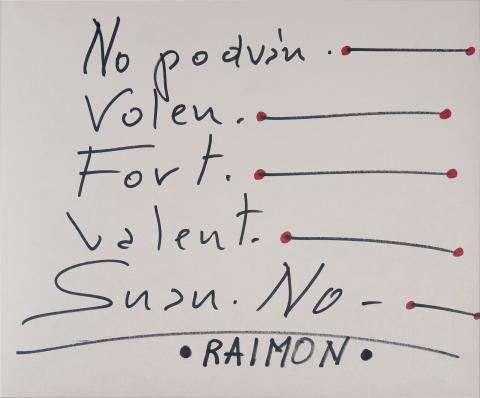 No podran.
Volen.
Fort.
Valent.
Suau. No -
• RAIMON •